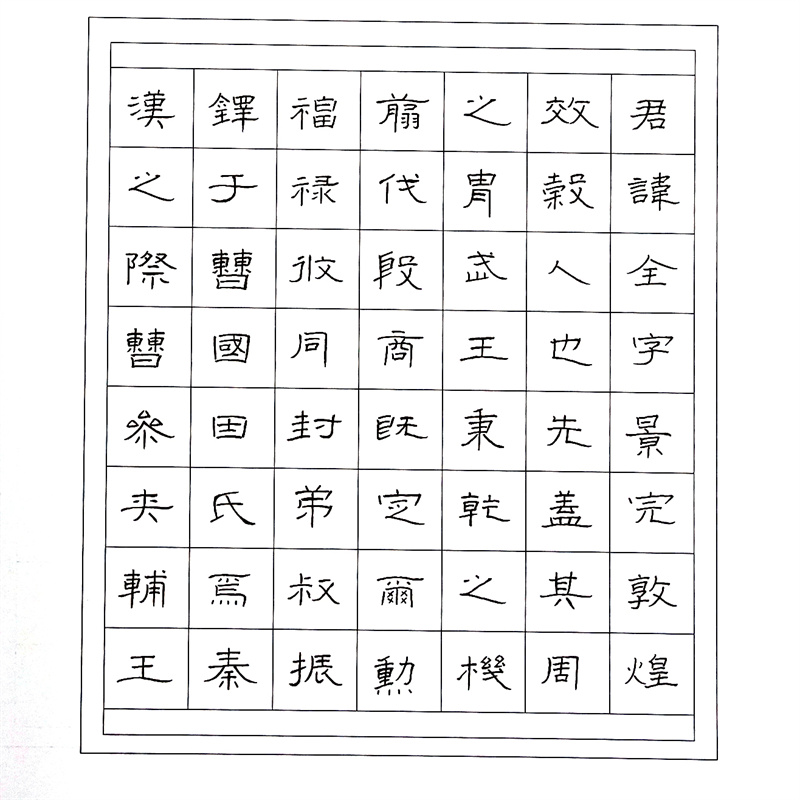 君諱全字景完敦煌
效穀人也先蓋其周
之胄武王秉乾之機
翦伐殷商既定爾勲
福禄攸同封弟叔振
鐸于曹國因氏焉秦
漢之際曹参夾輔王